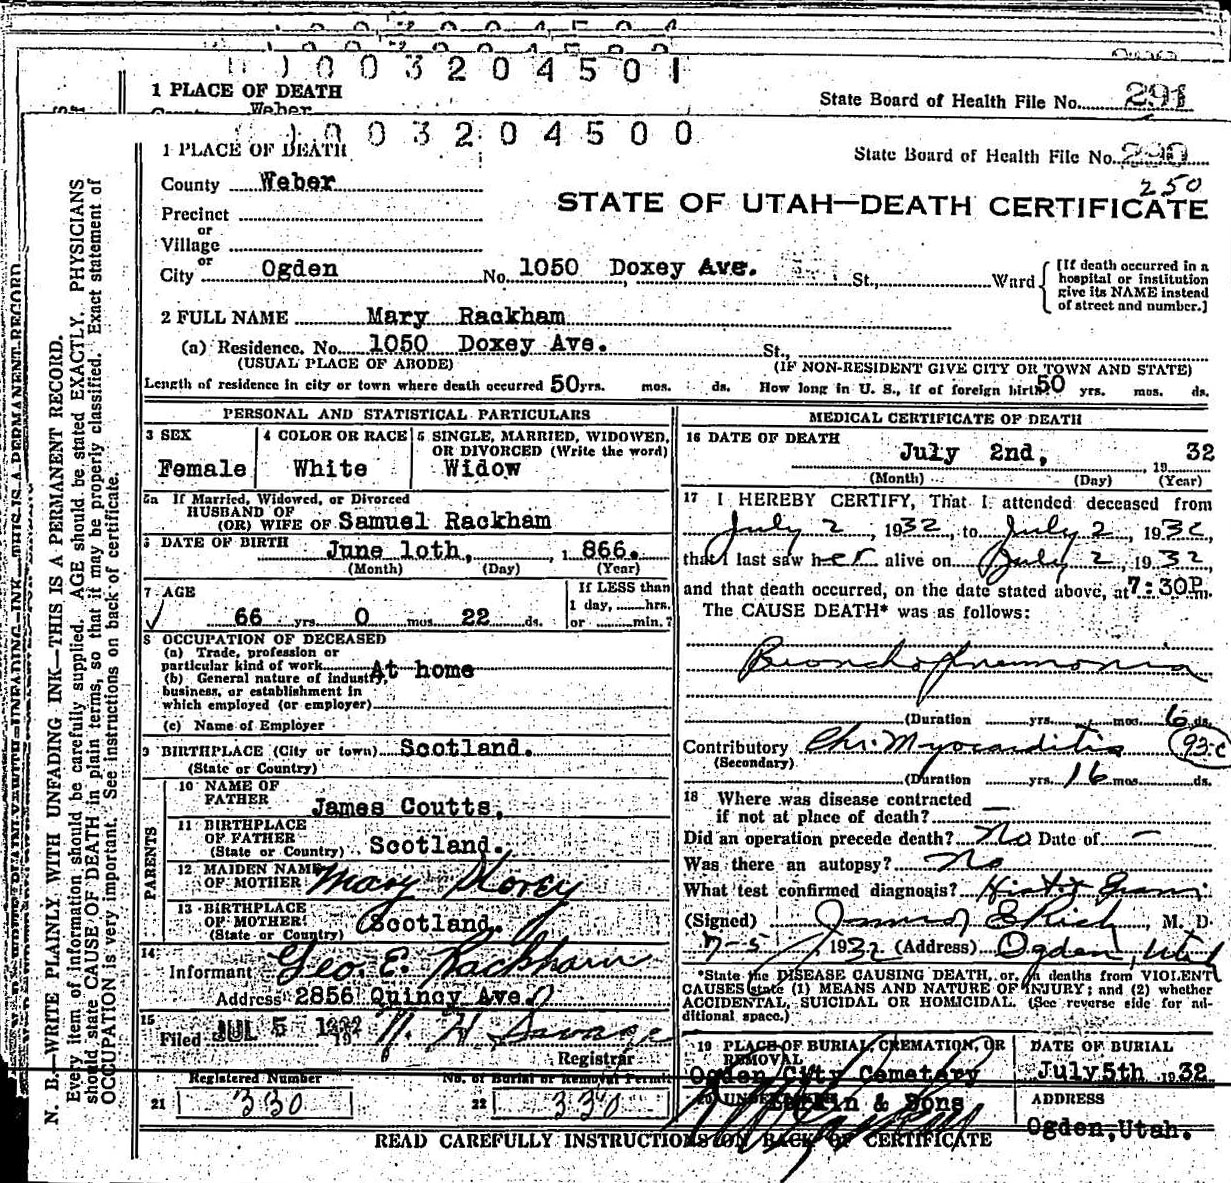 1 0 0 3 2 0 4 5 0 1
1 PLACE OF DEATH
State Board of Health File No. 291
County Weber
0 0 3 2 0 4 5 0 0
1 PLACE OF DEATH
State Board of Health File No. 290
250
County Weber
STATE OF UTAH—DEATH CERTIFICATE
Precinct
or
Village
or
City Ogden No. 1050 Doxey Ave. St., Ward
[If death occurred in a hospital or institution give its NAME instead of street and number.]
2 FULL NAME Mary Rackham
(a) Residence. No. 1050 Doxey Ave. St.,
(USUAL PLACE OF ABODE) (IF NON-RESIDENT GIVE CITY OR TOWN AND STATE)
Length of residence in city or town where death occurred 50 yrs. mos. ds. How long in U. S., if of foreign birth? 50 yrs. mos. ds.
PERSONAL AND STATISTICAL PARTICULARS
3 SEX Female
4 COLOR OR RACE White
5 SINGLE, MARRIED, WIDOWED, OR DIVORCED (Write the word)
Widow
5a If Married, Widowed, or Divorced
HUSBAND OF
(OR) WIFE OF Samuel Rackham
6 DATE OF BIRTH June 10th, 1866.
(Month) (Day) (Year)
7 AGE
66 yrs. 0 mos. 22 ds.
If LESS than
1 day, hrs.
or min.?
8 OCCUPATION OF DECEASED
(a) Trade, profession or
particular kind of work At home
(b) General nature of industry,
business, or establishment in
which employed (or employer)
(c) Name of Employer
9 BIRTHPLACE (City or town) Scotland.
(State or Country)
PARENTS
10 NAME OF
FATHER James Coutts,
11 BIRTHPLACE
OF FATHER
(State or Country) Scotland.
12 MAIDEN NAME
OF MOTHER Mary Storey
13 BIRTHPLACE
OF MOTHER
(State or Country) Scotland.
14
Informant Geo. E. Rackham
Address 2856 Quincy Ave.
15
Filed JUL 5 1932 N. H. Savage
Registrar
Registered Number No. of Burial or Removal Permit
21 330 22 330
MEDICAL CERTIFICATE OF DEATH
16 DATE OF DEATH
July 2nd, 1932
(Month) (Day) (Year)
17 I HEREBY CERTIFY, That I attended deceased from
July 2, 1932, to July 2 1932,
that I last saw her alive on July 2, 1932
and that death occurred, on the date stated above, at 7:30P m.
The CAUSE DEATH* was as follows:
Bronchopneumonia
(Duration yrs. mos. 6 ds.
Contributory Chr. Myocarditis 93-c
(Secondary)
(Duration yrs. 16 mos. ds.
18 Where was disease contracted
if not at place of death? —
Did an operation precede death? No Date of —
Was there an autopsy? No
What test confirmed diagnosis?
(Signed) James E Rich, M. D.
7-5, 1932 (Address) Ogden, Utah
*State the DISEASE CAUSING DEATH, or, in deaths from VIOLENT
CAUSES state (1) MEANS AND NATURE OF INJURY; and (2) whether
ACCIDENTAL, SUICIDAL OR HOMICIDAL. (See reverse side for ad-
ditional space.)
19 PLACE OF BURIAL, CREMATION, OR
REMOVAL
Ogden City Cemetery
DATE OF BURIAL
July 5th 1932
20 UNDERTAKER Larkin & Sons
ADDRESS
Ogden, Utah.
READ CAREFULLY INSTRUCTIONS ON BACK OF CERTIFICATE
N. B.—WRITE PLAINLY, WITH UNFADING INK—THIS IS A PERMANENT RECORD.
Every item of information should be carefully supplied. AGE should be stated EXACTLY. PHYSICIANS
should state CAUSE OF DEATH in plain terms, so that it may be properly classified. Exact statement of
OCCUPATION is very important. See instructions on back of certificate.